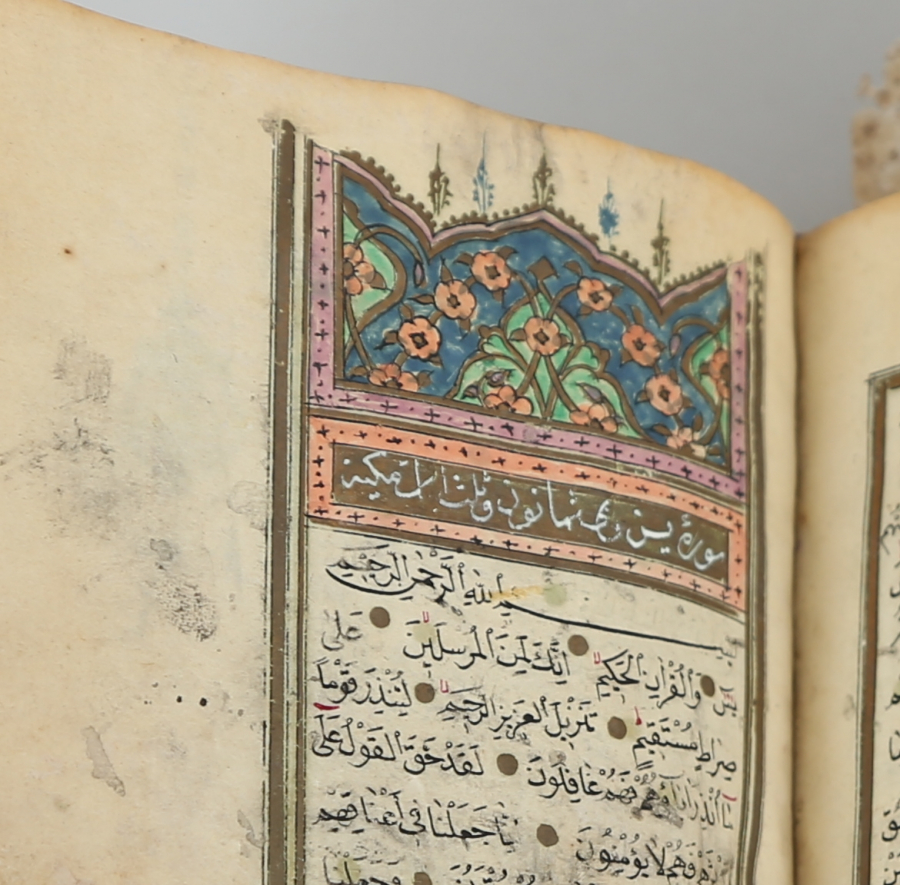 سورة يس وهى ثمانون وثلث ايات مكية
بسم الله الرحمن الرحيم
يس والقرآن الحكيم انك لمن المرسلين على
صراط مستقيم تنزيل العزيز الرحيم لتنذر قوما
ما انذر اباؤهم فهم غافلون لقد حق القول على
فهم لا يؤمنون انا جعلنا فى اعناقهم
وجعلنا